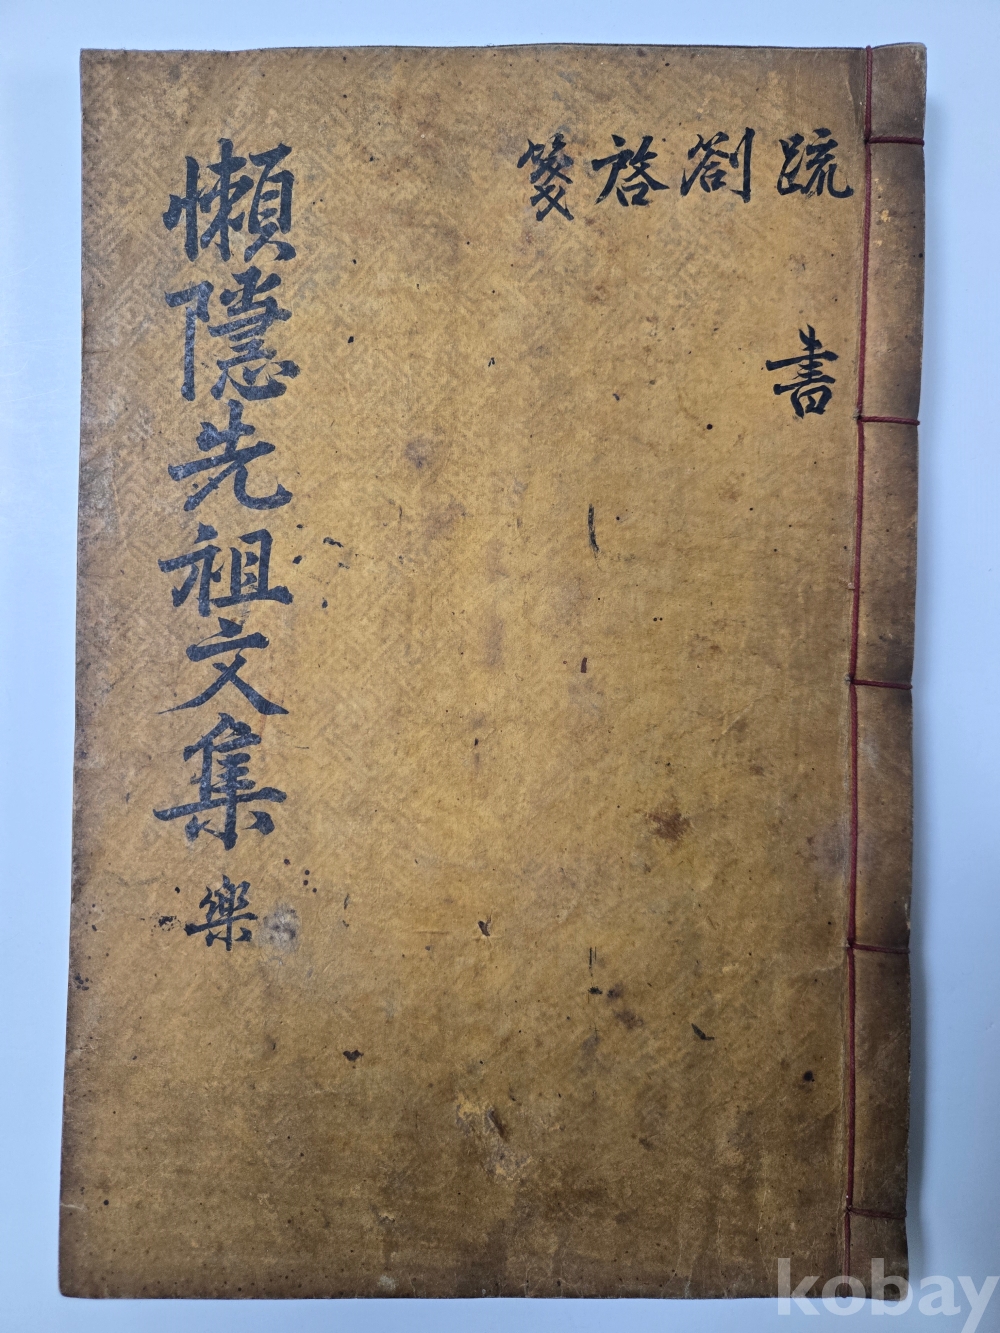 疏
書
劄
啓
箋
懶隱先祖文集 樂
kobay